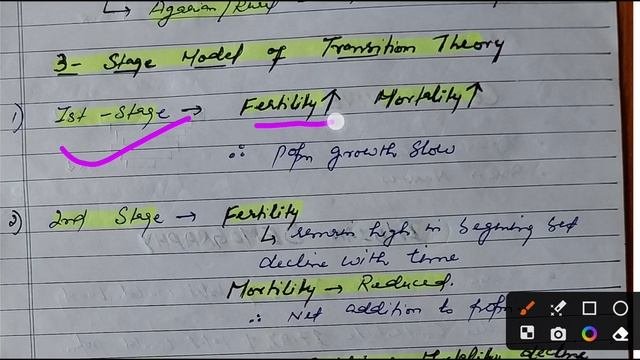 ↳ Agarian/Rural
3- Stage Model of Transition Theory
1) Ist - Stage → Fertility↑ Mortality↑
∴ popn growth slow
2) 2nd Stage → Fertility
↳ remain high in begining but
decline with time
Mortility → Reduced.
∴ Net addition to popn
Mortality decline